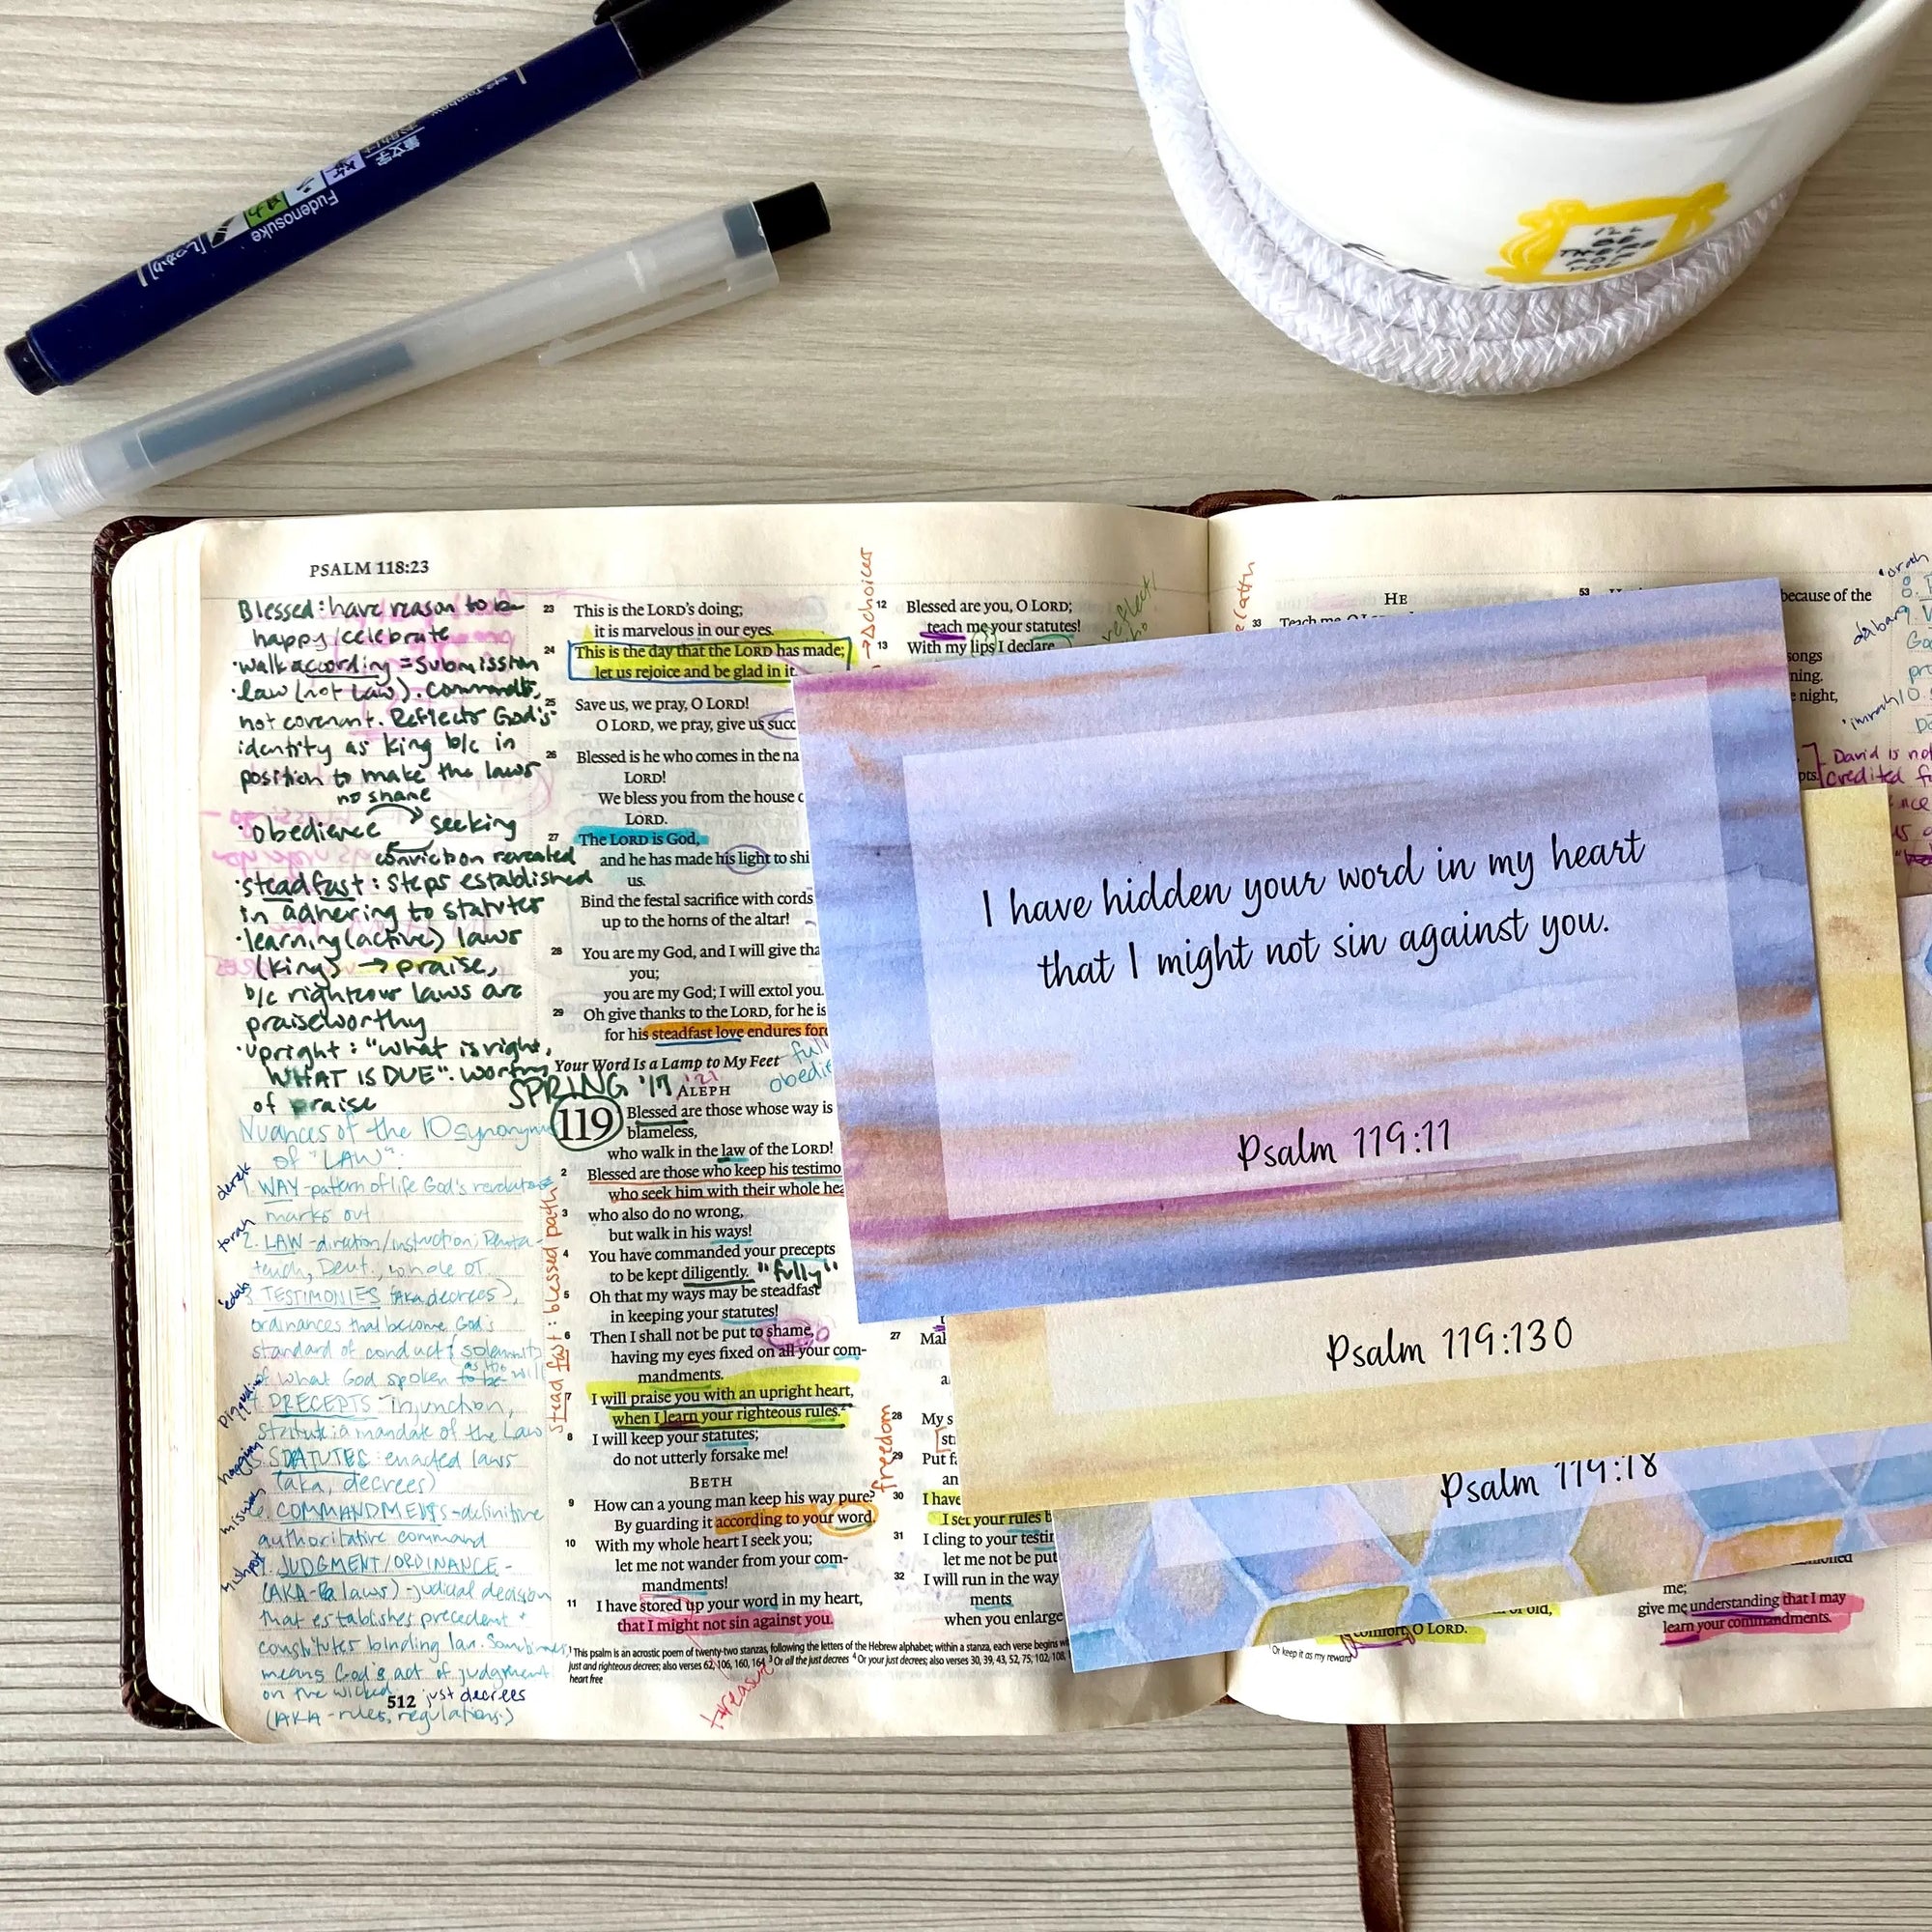 Fudenosuke
筆文字
I'LL
BE
THERE
FOR
YOU
PSALM 118:23
Blessed: have reason to be
happy/celebrate
·walk according = submission
·law (not Law). Commands,
not covenant. Reflects God's
identity as king b/c in
position to make the laws
no shame
·obedience seeking
conviction revealed
·steadfast: steps established
in adhering to statutes
·learning (active) laws
(king) → praise,
b/c righteous laws are
praiseworthy
·upright: "what is right,
WHAT IS DUE". worthy
of praise
Nuances of the 10 synonyms
of "LAW":
derek
1. WAY - pattern of life God's revelation
marks out
torah
2. LAW - direction/instruction; Penta-
teuch, Deut., whole OT.
'edah
3. TESTIMONIES (AKA decrees),
ordinances that become God's
standard of conduct & solemnity
of what God spoken as His
to be will
4. PRECEPTS - injunction,
statute: a mandate of the Law
5. STATUTES: enacted laws
(aka, decrees)
6. COMMANDMENTS - definitive
authoritative command
7. JUDGMENT/ORDINANCE -
(AKA laws) - judicial decision
that establishes precedent +
constitutes binding law. Sometimes
means God's act of judgment
on the wicked.
just decrees
(AKA - rules, regulations)
512
23 This is the LORD's doing;
it is marvelous in our eyes.
24 This is the day that the LORD has made;
let us rejoice and be glad in it.
25 Save us, we pray, O LORD!
O LORD, we pray, give us succ
26 Blessed is he who comes in the na
LORD!
We bless you from the house o
LORD.
27 The LORD is God,
and he has made his light to shi
us.
Bind the festal sacrifice with cords
up to the horns of the altar!
28 You are my God, and I will give tha
you;
you are my God; I will extol you.
29 Oh give thanks to the LORD, for he is
for his steadfast love endures fore
Your Word Is a Lamp to My Feet
full
obedie
SPRING '17 '21
ALEPH
119 Blessed are those whose way is
blameless,
who walk in the law of the LORD!
2 Blessed are those who keep his testimo
who seek him with their whole hea
3 who also do no wrong,
but walk in his ways!
4 You have commanded your precepts
to be kept diligently. "fully"
5 Oh that my ways may be steadfast
in keeping your statutes!
6 Then I shall not be put to shame,
having my eyes fixed on all your com-
mandments.
7 I will praise you with an upright heart,
when I learn your righteous rules.
8 I will keep your statutes;
do not utterly forsake me!
steadfast: blessed path
BETH
9 How can a young man keep his way pure?
By guarding it according to your word.
10 With my whole heart I seek you;
let me not wander from your com-
mandments!
11 I have stored up your word in my heart,
that I might not sin against you.
1 This psalm is an acrostic poem of twenty-two stanzas, following the letters of the Hebrew alphabet; within a stanza, each verse begins wi
just and righteous decrees; also verses 62, 106, 160, 164 3 Or all the just decrees 4 Or your just decrees; also verses 30, 39, 43, 52, 75, 102, 108,
heart free
treasure
→ Δchoices
12 Blessed are you, O LORD;
teach me your statutes!
13 With my lips I declare
reflect!
27 Mak
28 My s
29 Put fa
an
30 I have
I set your rules b
31 I cling to your testim
let me not be put
32 I will run in the way
ments
when you enlarge
freedom
HE
33 Teach me, O LORD
53
because of the
songs
night,
'imrah
David is not
credited f
I have hidden your word in my heart
that I might not sin against you.
Psalm 119:11
Psalm 119:130
Psalm 119:18
of old,
comfort, O LORD.
Or keep it as my reward
me;
give me understanding that I may
learn your commandments.